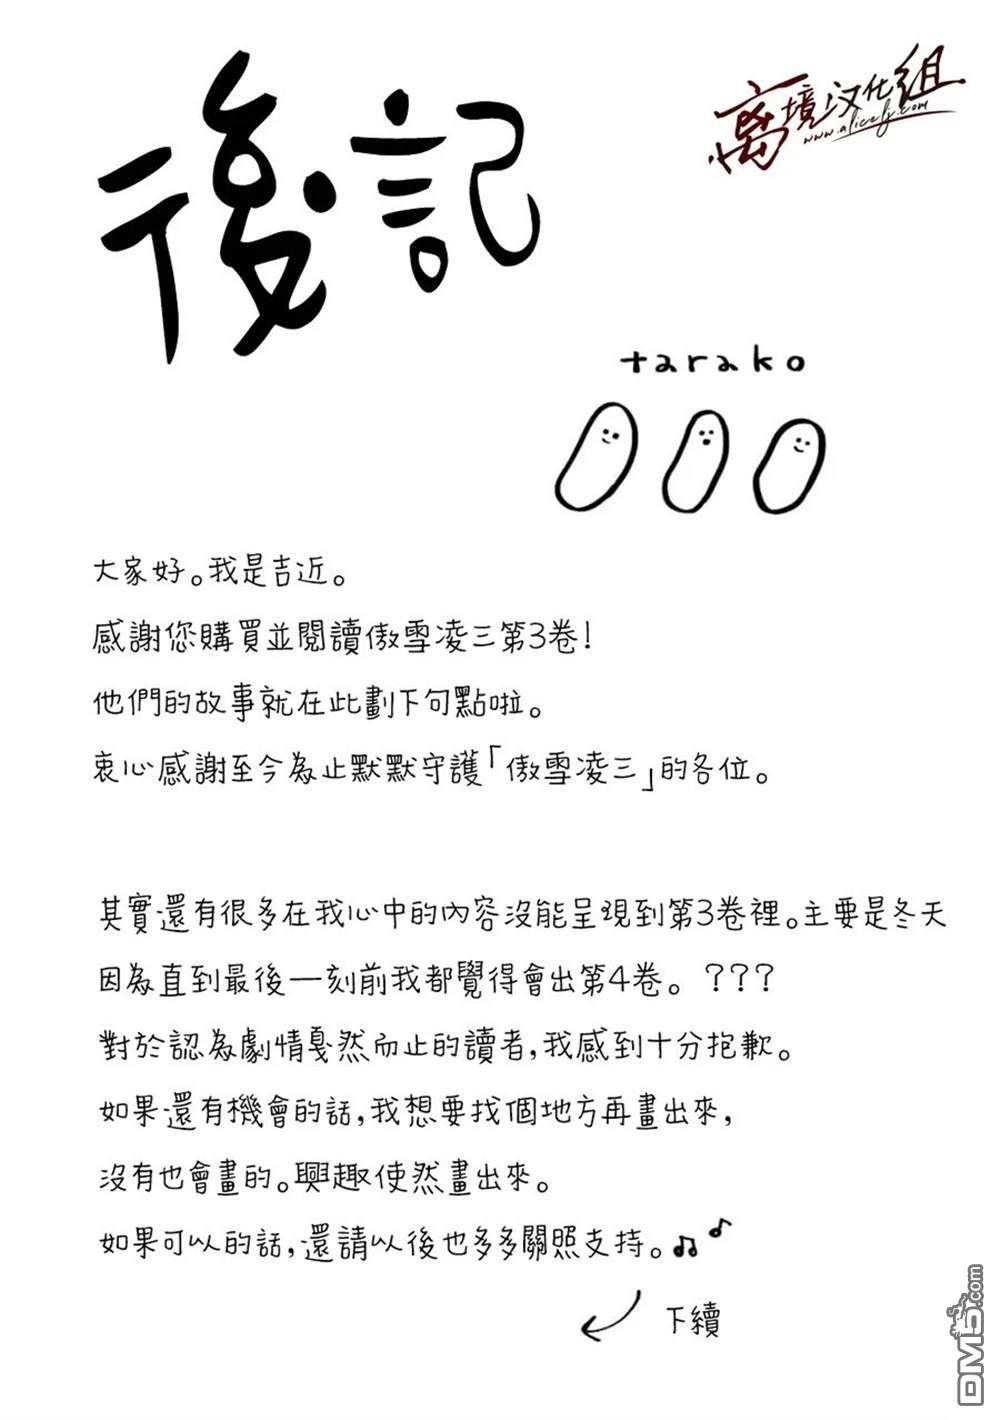 後記
离境汉化组
www.alicelj.com
tarako
大家好。我是吉近。
感謝您購買並閱讀傲雪凌三第3卷!
他們的故事就在此劃下句點啦。
衷心感謝至今為止默默守護「傲雪凌三」的各位。
其實還有很多在我心中的內容沒能呈現到第3卷裡。主要是冬天
因為直到最後一刻前我都覺得會出第4卷。???
對於認為劇情戛然而止的讀者,我感到十分抱歉。
如果還有機會的話,我想要找個地方再畫出來,
沒有也會畫的。興趣使然畫出來。
如果可以的話,還請以後也多多關照支持。♫♪
下續
DM5.com